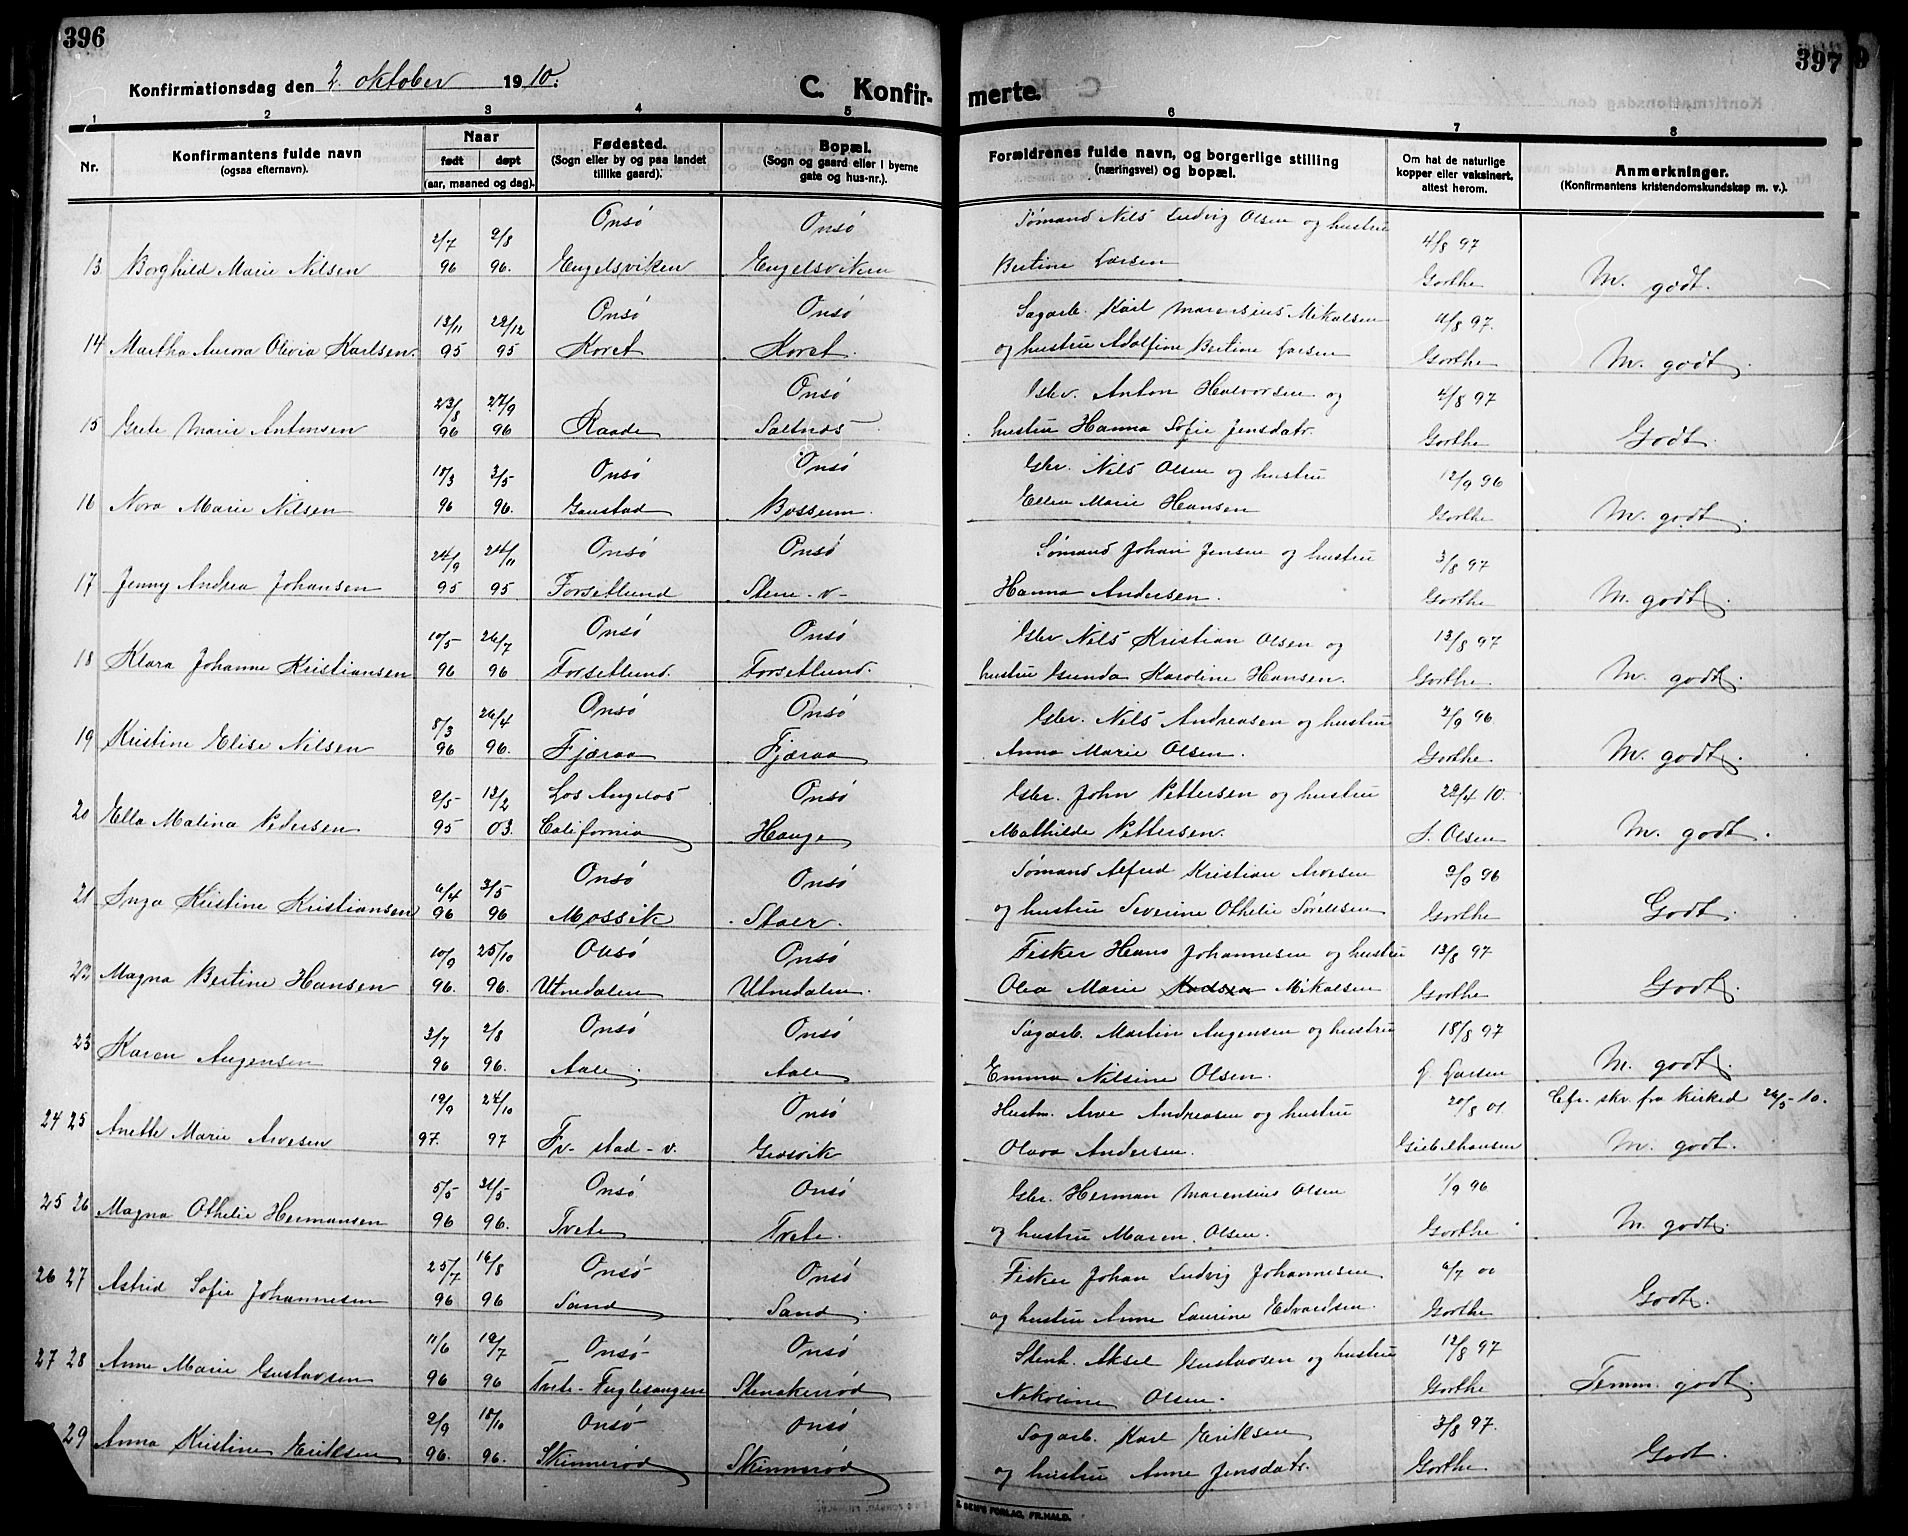 396
Konfirmationsdag den 2. oktober 1910.
C. Konfir-
1 2 3 4 5
Nr.
Konfirmantens fulde navn
(ogsaa efternavn).
Naar
født døpt
(aar, maaned og dag).
Fødested.
(Sogn eller by og paa landet
tillike gaard).
Bopæl.
(Sogn og gaard eller i byerne
gate og hus-nr.).
397
merte.
6 7 8
Forældrenes fulde navn, og borgerlige stilling
(næringsvei) og bopæl.
Om hat de naturlige
kopper eller vaksinert,
attest herom.
Anmerkninger.
(Konfirmantens kristendomskundskap m. v.).
2/7 2/8 Onsø Onsø Sømand Nils Ludvig Olsen og hustru 4/8 97
13 Borghild Marie Nilsen 96 96. Engelsviken Engelsviken Bertine Larsen Gorthe M. godt.
13/11 22/12 Onsø Onsø Sagarb. Karl Marensius Mikalsen 4/8 97.
14 Martha Aurora Olivia Karlsen. 95 95 Koret Koret. og hustru Adolfine Bertine Larsen Gorthe M. godt.
23/8 27/9 Onsø Gbr. Anton Halvorsen og 4/8 97
15 Grete Marie Antonsen 96 96 Raade Saltnes hustru Hanna Sofie Jensdatr. Gorthe Godt.
18/3 3/5 Onsø Onsø Gbr. Nils Olsen og hustru 12/9 96
16 Nora Marie Nilsen 96 96. Gaustad Bossum. Ellen Marie Hansen Gorthe M. godt.
24/9 24/11 Onsø Onsø Sømand Johan Jensen og hustru 3/8 97
17 Jenny Andrea Johansen 95 95 Forsetlund Stene-v- Hanna Andersen. Gorthe M. godt.
10/5 26/7 Onsø Onsø Gbr Nils Kristian Olsen og 13/8 97
18 Klara Johanne Kristiansen 96 96 Forsetlund. Forsetlund. hustru Gunda Karoline Hansen. Gorthe M. godt.
8/3 26/4 Onsø Onsø Gbr. Nils Andreasen og hustru 2/9 96
19 Kristine Elise Nilsen 96 96. Fjæraa Fjæraa Anna Marie Olsen. Gorthe M. godt.
2/5 12/2 Los Angelos Onsø Gbr. John Pettersen og hustru 22/4 10.
20 Ella Malina Pedersen 95 03. California Hauge Mathilde Pettersen. S. Olsen M. godt.
6/4 3/5 Onsø Onsø Sømand Alfred Kristian Arvesen 2/9 96
21 Inga Kristine Kristiansen 96 96 Mossik Staer. og hustru Severine Othelie Sørensen Gorthe Godt.
10/9 25/10 Onsø Onsø Fisker Hans Johannesen og hustru 13/8 97
23 Magna Bertine Hansen 96. 96. Utnedalen Utnedalen. Olea Marie Mikalsen Gorthe Godt.
3/7 2/8 Onsø Onsø Sagarb. Martin Augensen og hustru 18/8 97
23 Karen Augensen 96 96. Aale Aale Emma Nilsine Olsen. L. Larsen M. godt.
19/9 24/10 Onsø Husm. Arve Andreasen og hustru 20/8 01 Cfr. skr. fra kirked 26/5-10.
24 25 Anette Marie Arvesen 97. 97 Fr-stad-v. Græsvik Olava Andersen. Giebelhausen M. godt.
5/5 31/5 Onsø Onsø Gbr. Herman Marensius Olsen 1/9 96
25 26 Magna Othelie Hermansen 96 96. Tvete Tvete. og hustru Maren Olsen. Gorthe M godt.
25/7 16/8 Onsø Onsø Fisker Johan Ludvig Johannesen 6/7 00
26 27 Astrid Sofie Johannesen 96 96 Sand Sand og hustru Anne Laurine Edvardsen. Gorthe Godt.
11/6 19/7 Onsø Onsø Stenh. Aksel Gustavsen og hustru 12/8 97
27 28 Anne Marie Gustavsen 96 96 Tvete-Fuglesangen Stenakerrød Nikoline Olsen. Gorthe Temm. godt.
2/9 18/10 Onsø Onsø Sagarb. Karl Eriksen 3/8 97.
29 Anna Kristine Eriksen 96. 96. Skinnerød Skinnerød og hustru Anne Jensdatr. Gorthe Godt.
FORLAG, FR.HALD.